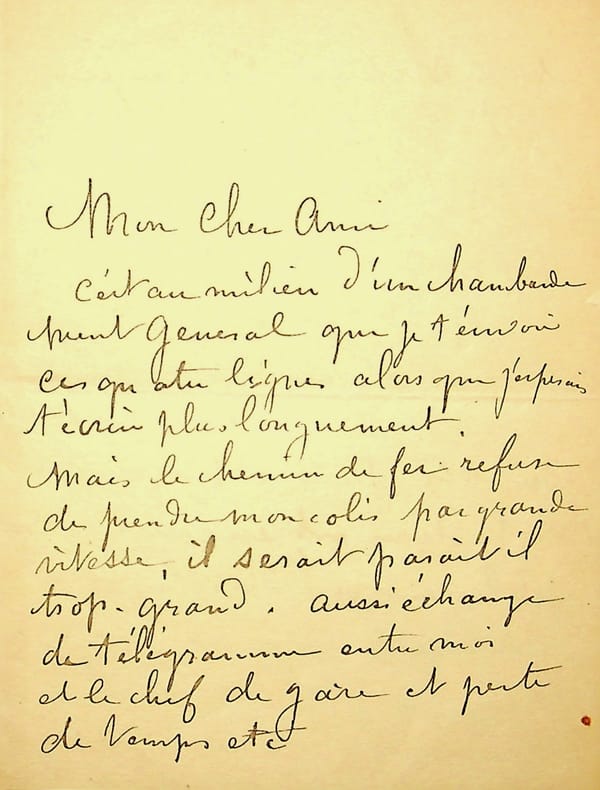 Mon cher Ami
C'est au milieu d'un chambarde
ment General que je t'envoie
ces quatre lignes alors que j'esperais
t'écrire plus longuement.
Mais le chemin de fer refuse
de prendre mon colis par grande
vitesse, il serait parait il
trop-grand. aussi échange
de télégramme entre moi
et le chef de gare et perte
de temps etc